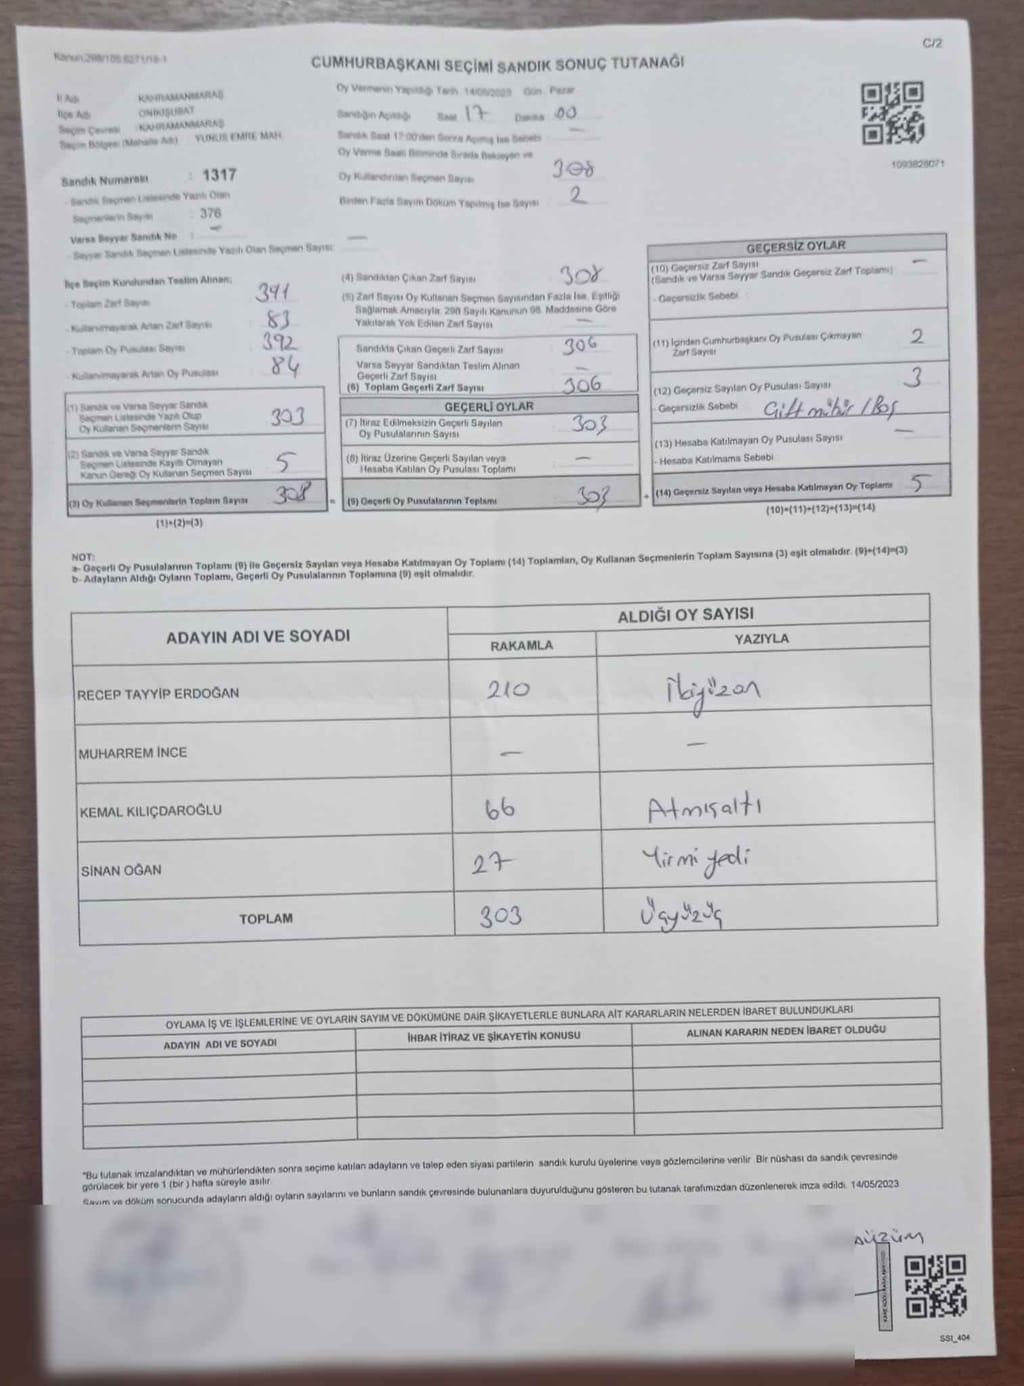 Kanun:298/105 6271/18-1
C/2
CUMHURBAŞKANI SEÇİMİ SANDIK SONUÇ TUTANAĞI
İl Adı : KAHRAMANMARAŞ
İlçe Adı : ONİKİŞUBAT
Seçim Çevresi : KAHRAMANMARAŞ
Seçim Bölgesi (Mahalle Adı) : YUNUS EMRE MAH.
Sandık Numarası : 1317
- Sandık Seçmen Listesinde Yazılı Olan
Seçmenlerin Sayısı : 376
Varsa Seyyar Sandık No : —
- Seyyar Sandık Seçmen Listesinde Yazılı Olan Seçmen Sayısı: —
Oy Vermenin Yapıldığı Tarih :14/05/2023 Gün : Pazar
Sandığın Açıldığı Saat 17 Dakika 00
Sandık Saat 17:00'den Sonra Açılmış İse Sebebi —
Oy Verme Saati Bitiminde Sırada Bekleyen ve
Oy Kullandırılan Seçmen Sayısı 308
Birden Fazla Sayım Döküm Yapılmış İse Sayısı 2
1093826071
İlçe Seçim Kurulundan Teslim Alınan;
- Toplam Zarf Sayısı 391
- Kullanılmayarak Artan Zarf Sayısı 83
- Toplam Oy Pusulası Sayısı 392
- Kullanılmayarak Artan Oy Pusulası 84
(1) Sandık ve Varsa Seyyar Sandık
Seçmen Listesinde Yazılı Olup
Oy Kullanan Seçmenlerin Sayısı 303
(2) Sandık ve Varsa Seyyar Sandık
Seçmen Listesinde Kayıtlı Olmayan
Kanun Gereği Oy Kullanan Seçmen Sayısı 5
(3) Oy Kullanan Seçmenlerin Toplam Sayısı 308 =
(1)+(2)=(3)
(4) Sandıktan Çıkan Zarf Sayısı 308
(5) Zarf Sayısı Oy Kullanan Seçmen Sayısından Fazla İse, Eşitliği
Sağlamak Amacıyla, 298 Sayılı Kanunun 98. Maddesine Göre
Yakılarak Yok Edilen Zarf Sayısı —
Sandıkta Çıkan Geçerli Zarf Sayısı 306
Varsa Seyyar Sandıktan Teslim Alınan
Geçerli Zarf Sayısı —
(6) Toplam Geçerli Zarf Sayısı 306
GEÇERLİ OYLAR
(7) İtiraz Edilmeksizin Geçerli Sayılan
Oy Pusulalarının Sayısı 303
(8) İtiraz Üzerine Geçerli Sayılan veya
Hesaba Katılan Oy Pusulası Toplamı —
(9) Geçerli Oy Pusulalarının Toplamı 303 +
GEÇERSİZ OYLAR
(10) Geçersiz Zarf Sayısı —
(Sandık ve Varsa Seyyar Sandık Geçersiz Zarf Toplamı)
- Geçersizlik Sebebi
(11) İçinden Cumhurbaşkanı Oy Pusulası Çıkmayan
Zarf Sayısı 2
(12) Geçersiz Sayılan Oy Pusulası Sayısı 3
- Geçersizlik Sebebi Çift mühür / Boş
(13) Hesaba Katılmayan Oy Pusulası Sayısı —
- Hesaba Katılmama Sebebi
(14) Geçersiz Sayılan veya Hesaba Katılmayan Oy Toplamı 5
(10)+(11)+(12)+(13)=(14)
NOT:
a- Geçerli Oy Pusulalarının Toplamı (9) ile Geçersiz Sayılan veya Hesaba Katılmayan Oy Toplamı (14) Toplamları, Oy Kullanan Seçmenlerin Toplam Sayısına (3) eşit olmalıdır. (9)+(14)=(3)
b- Adayların Aldığı Oyların Toplamı, Geçerli Oy Pusulalarının Toplamına (9) eşit olmalıdır.
ADAYIN ADI VE SOYADI ALDIĞI OY SAYISI
RAKAMLA YAZIYLA
RECEP TAYYİP ERDOĞAN 210 İkiyüzon
MUHARREM İNCE — —
KEMAL KILIÇDAROĞLU 66 Atmışaltı
SİNAN OĞAN 27 Yirmi yedi
TOPLAM 303 Üçyüzüç
OYLAMA İŞ VE İŞLEMLERİNE VE OYLARIN SAYIM VE DÖKÜMÜNE DAİR ŞİKAYETLERLE BUNLARA AİT KARARLARIN NELERDEN İBARET BULUNDUKLARI
ADAYIN ADI VE SOYADI İHBAR İTİRAZ VE ŞİKAYETİN KONUSU ALINAN KARARIN NEDEN İBARET OLDUĞU
*Bu tutanak imzalandıktan ve mühürlendikten sonra seçime katılan adayların ve talep eden siyasi partilerin sandık kurulu üyelerine veya gözlemcilerine verilir. Bir nüshası da sandık çevresinde
görülecek bir yere 1 (bir ) hafta süreyle asılır.
Sayım ve döküm sonucunda adayların aldığı oyların sayılarını ve bunların sandık çevresinde bulunanlara duyurulduğunu gösteren bu tutanak tarafımızdan düzenlenerek imza edildi. 14/05/2023
SSI_404